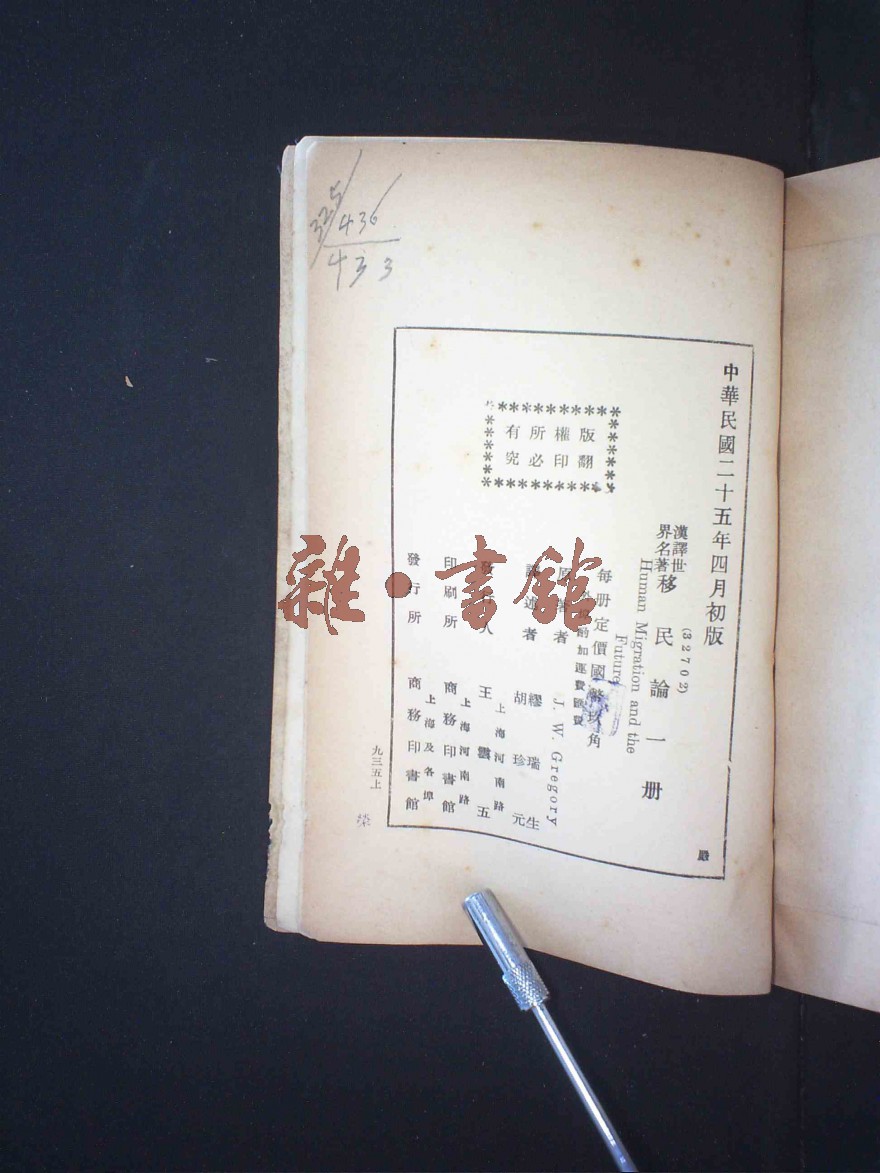 325/436
433
中華民國二十五年四月初版
(32702)
漢譯世界名著 移民論 一册
Human Migration and the Future
每册定價國幣玖角
外埠酌加運費匯費
版權所有
翻印必究
原著者 J. W. Gregory
譯述者 繆瑞生 胡珍元
發行人 王雲五
上海河南路
印刷所 商務印書館
上海河南路
發行所 商務印書館
上海及各埠
九三五上
雜·書館